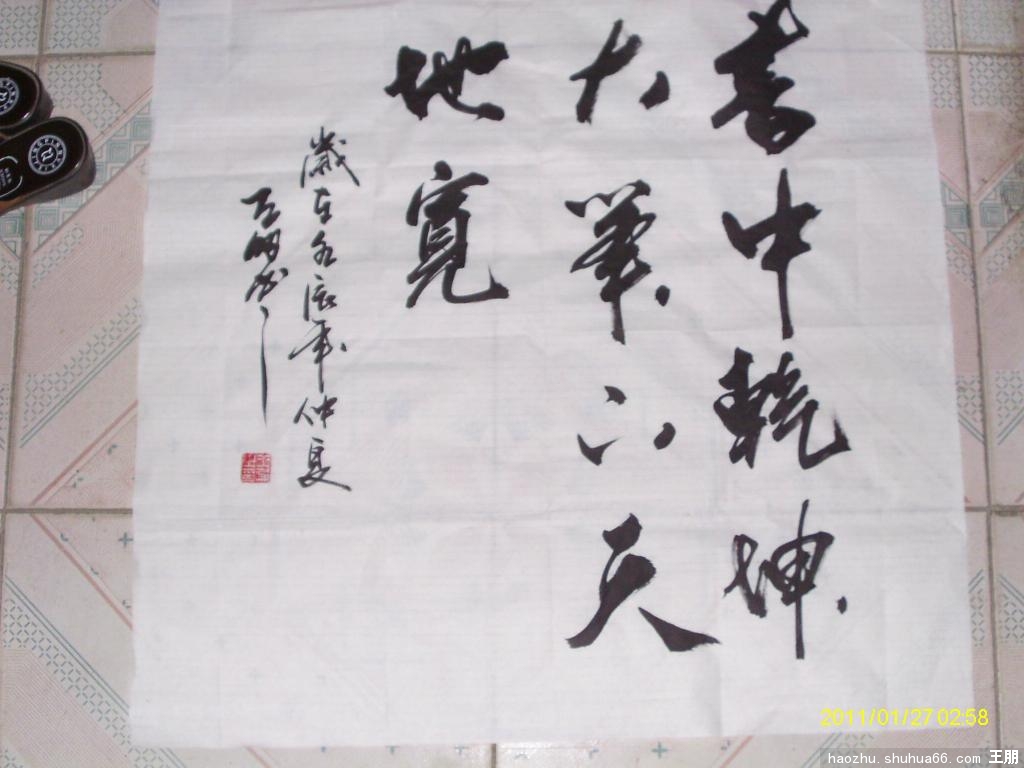 書中乾坤
大筆下天
地寬
歲在辰年仲夏
2011/01/27 02:58
haozhu.shuhua66.com 王朋